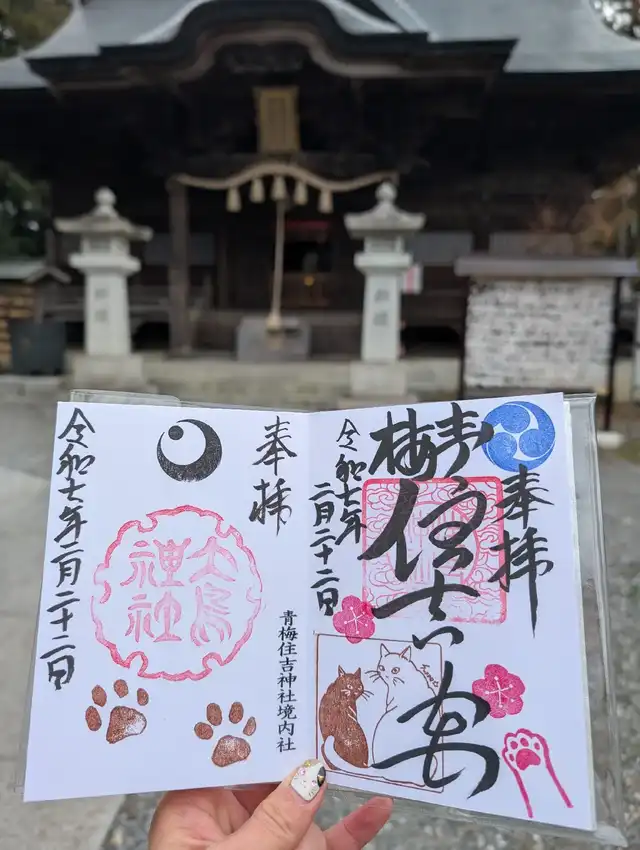 奉拝
青梅
住吉宮
令和七年
二月二十二日
奉拝
大鳥
神社
青梅住吉神社境内社
令和七年二月二十二日